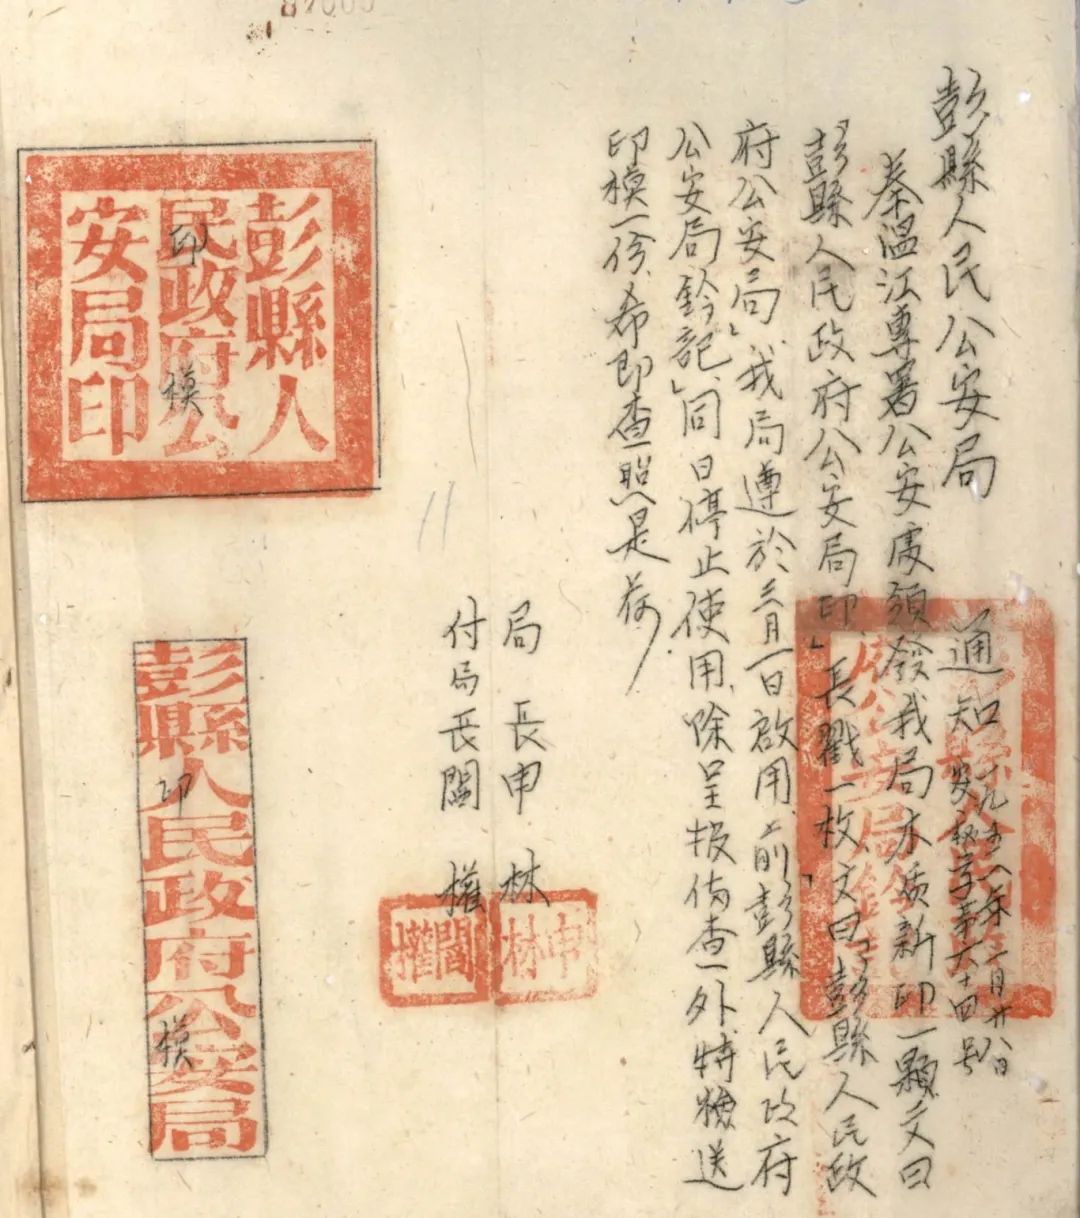 彭縣人民公安局 通知
一九五一年二月廿八日
安秘字第六十四号
奉温江專署公安處頒發我局木质新印一顆文曰
「彭縣人民政府公安局印」長戳一枚文曰「彭縣人民政
府公安局」、我局遵於三月一日啟用、前「彭縣人民政府
公安局鈐記」同日停止使用、除呈报俻查外、特檢送
印模一份、希即查照是荷
局長申林
付局長閻權
申林
閻權
彭縣人
民政府公
安局印
印模
彭縣人民政府公安局
印模